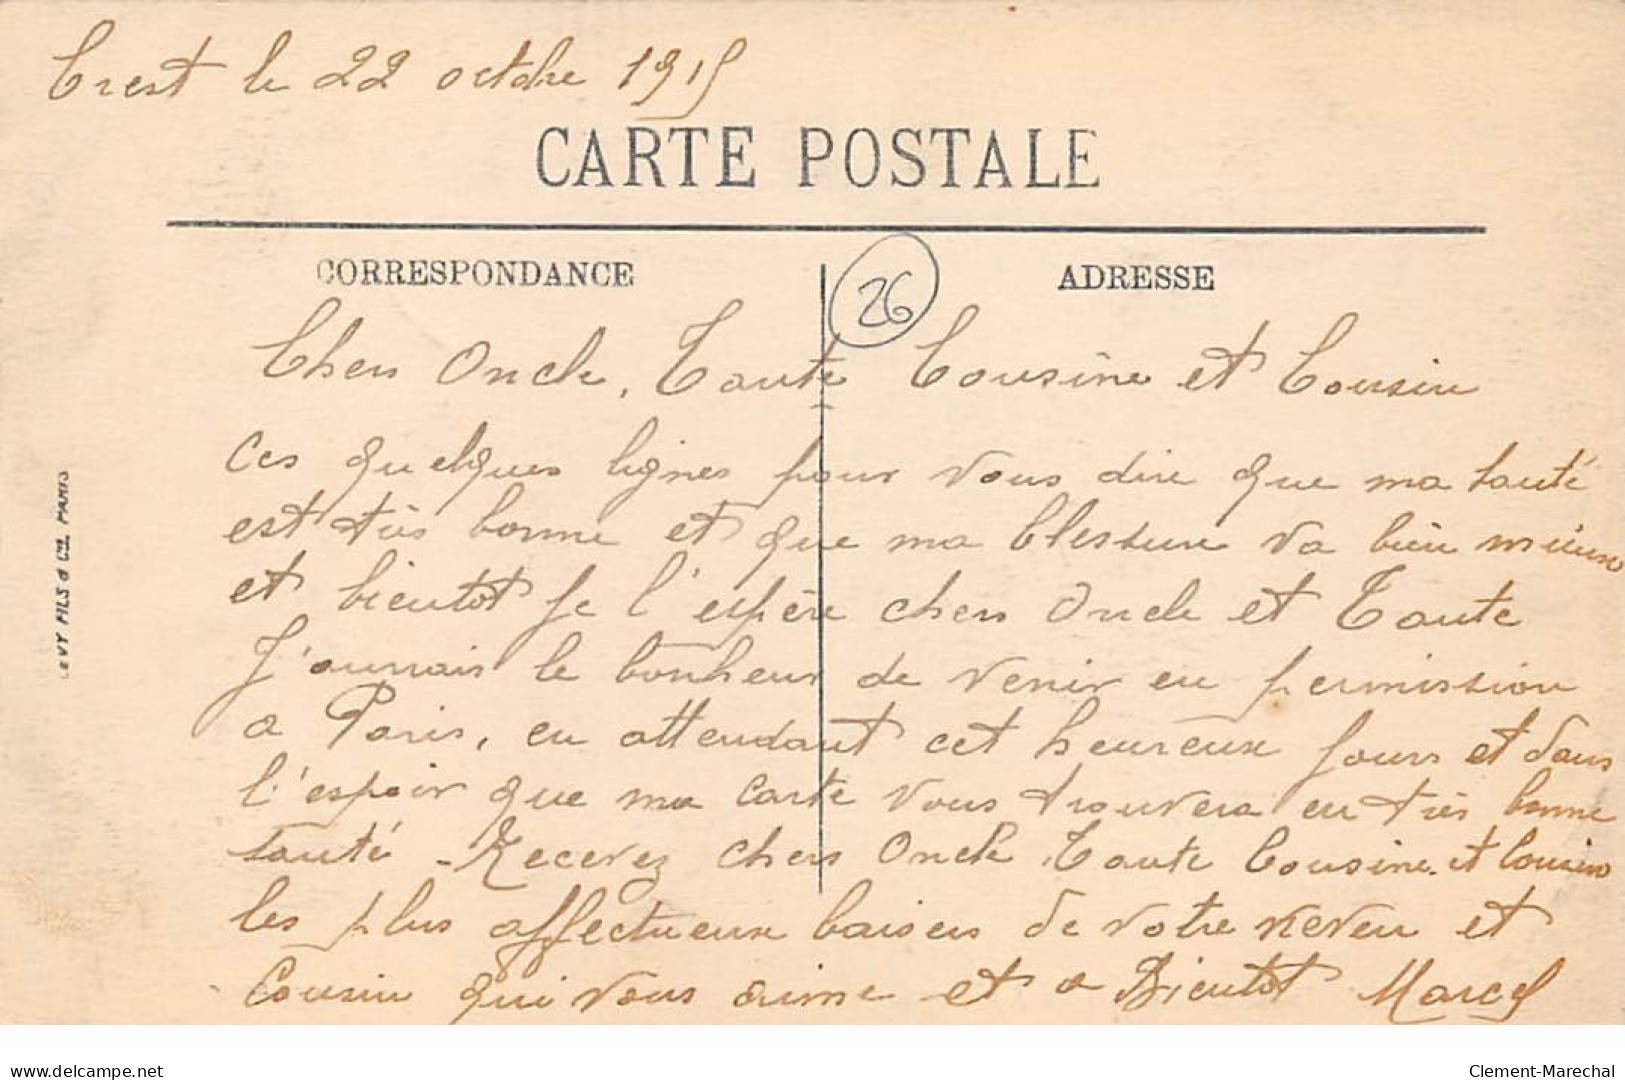 Crest le 22 octobre 1915
CARTE POSTALE
CORRESPONDANCE
ADRESSE
26
Chers Oncle, Tante Cousine et Cousin
Ces quelques lignes pour vous dire que ma santé
est très bonne et que ma blessure va bien mieux
et bientot je l'espère chers Oncle et Tante
J'aurrais le bonheur de venir en permission
a Paris, en attendant cet heureux jours et dans
l'espoir que ma carte vous trouvera en très bonne
santé - Recevez chers Oncle Tante Cousine et Cousin
les plus affectueux baisers de votre neveu et
Cousin qui vous aime et a Bientot Marcel
LEVY FILS & Cie PARIS
delcampe.net
Clement-Marechal